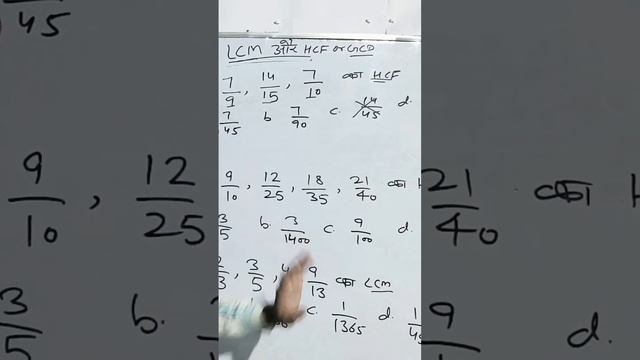 LCM और HCF or GCD
7/9, 14/15, 7/10 का HCF
7/45 b 7/90 c. 14/45 d.
9/10, 12/25, 18/35, 21/40 का H
3/5 b. 3/1400 c. 9/100 d.
2/3, 3/5, 4 9/13 का LCM
c. 1/1365 d. 1